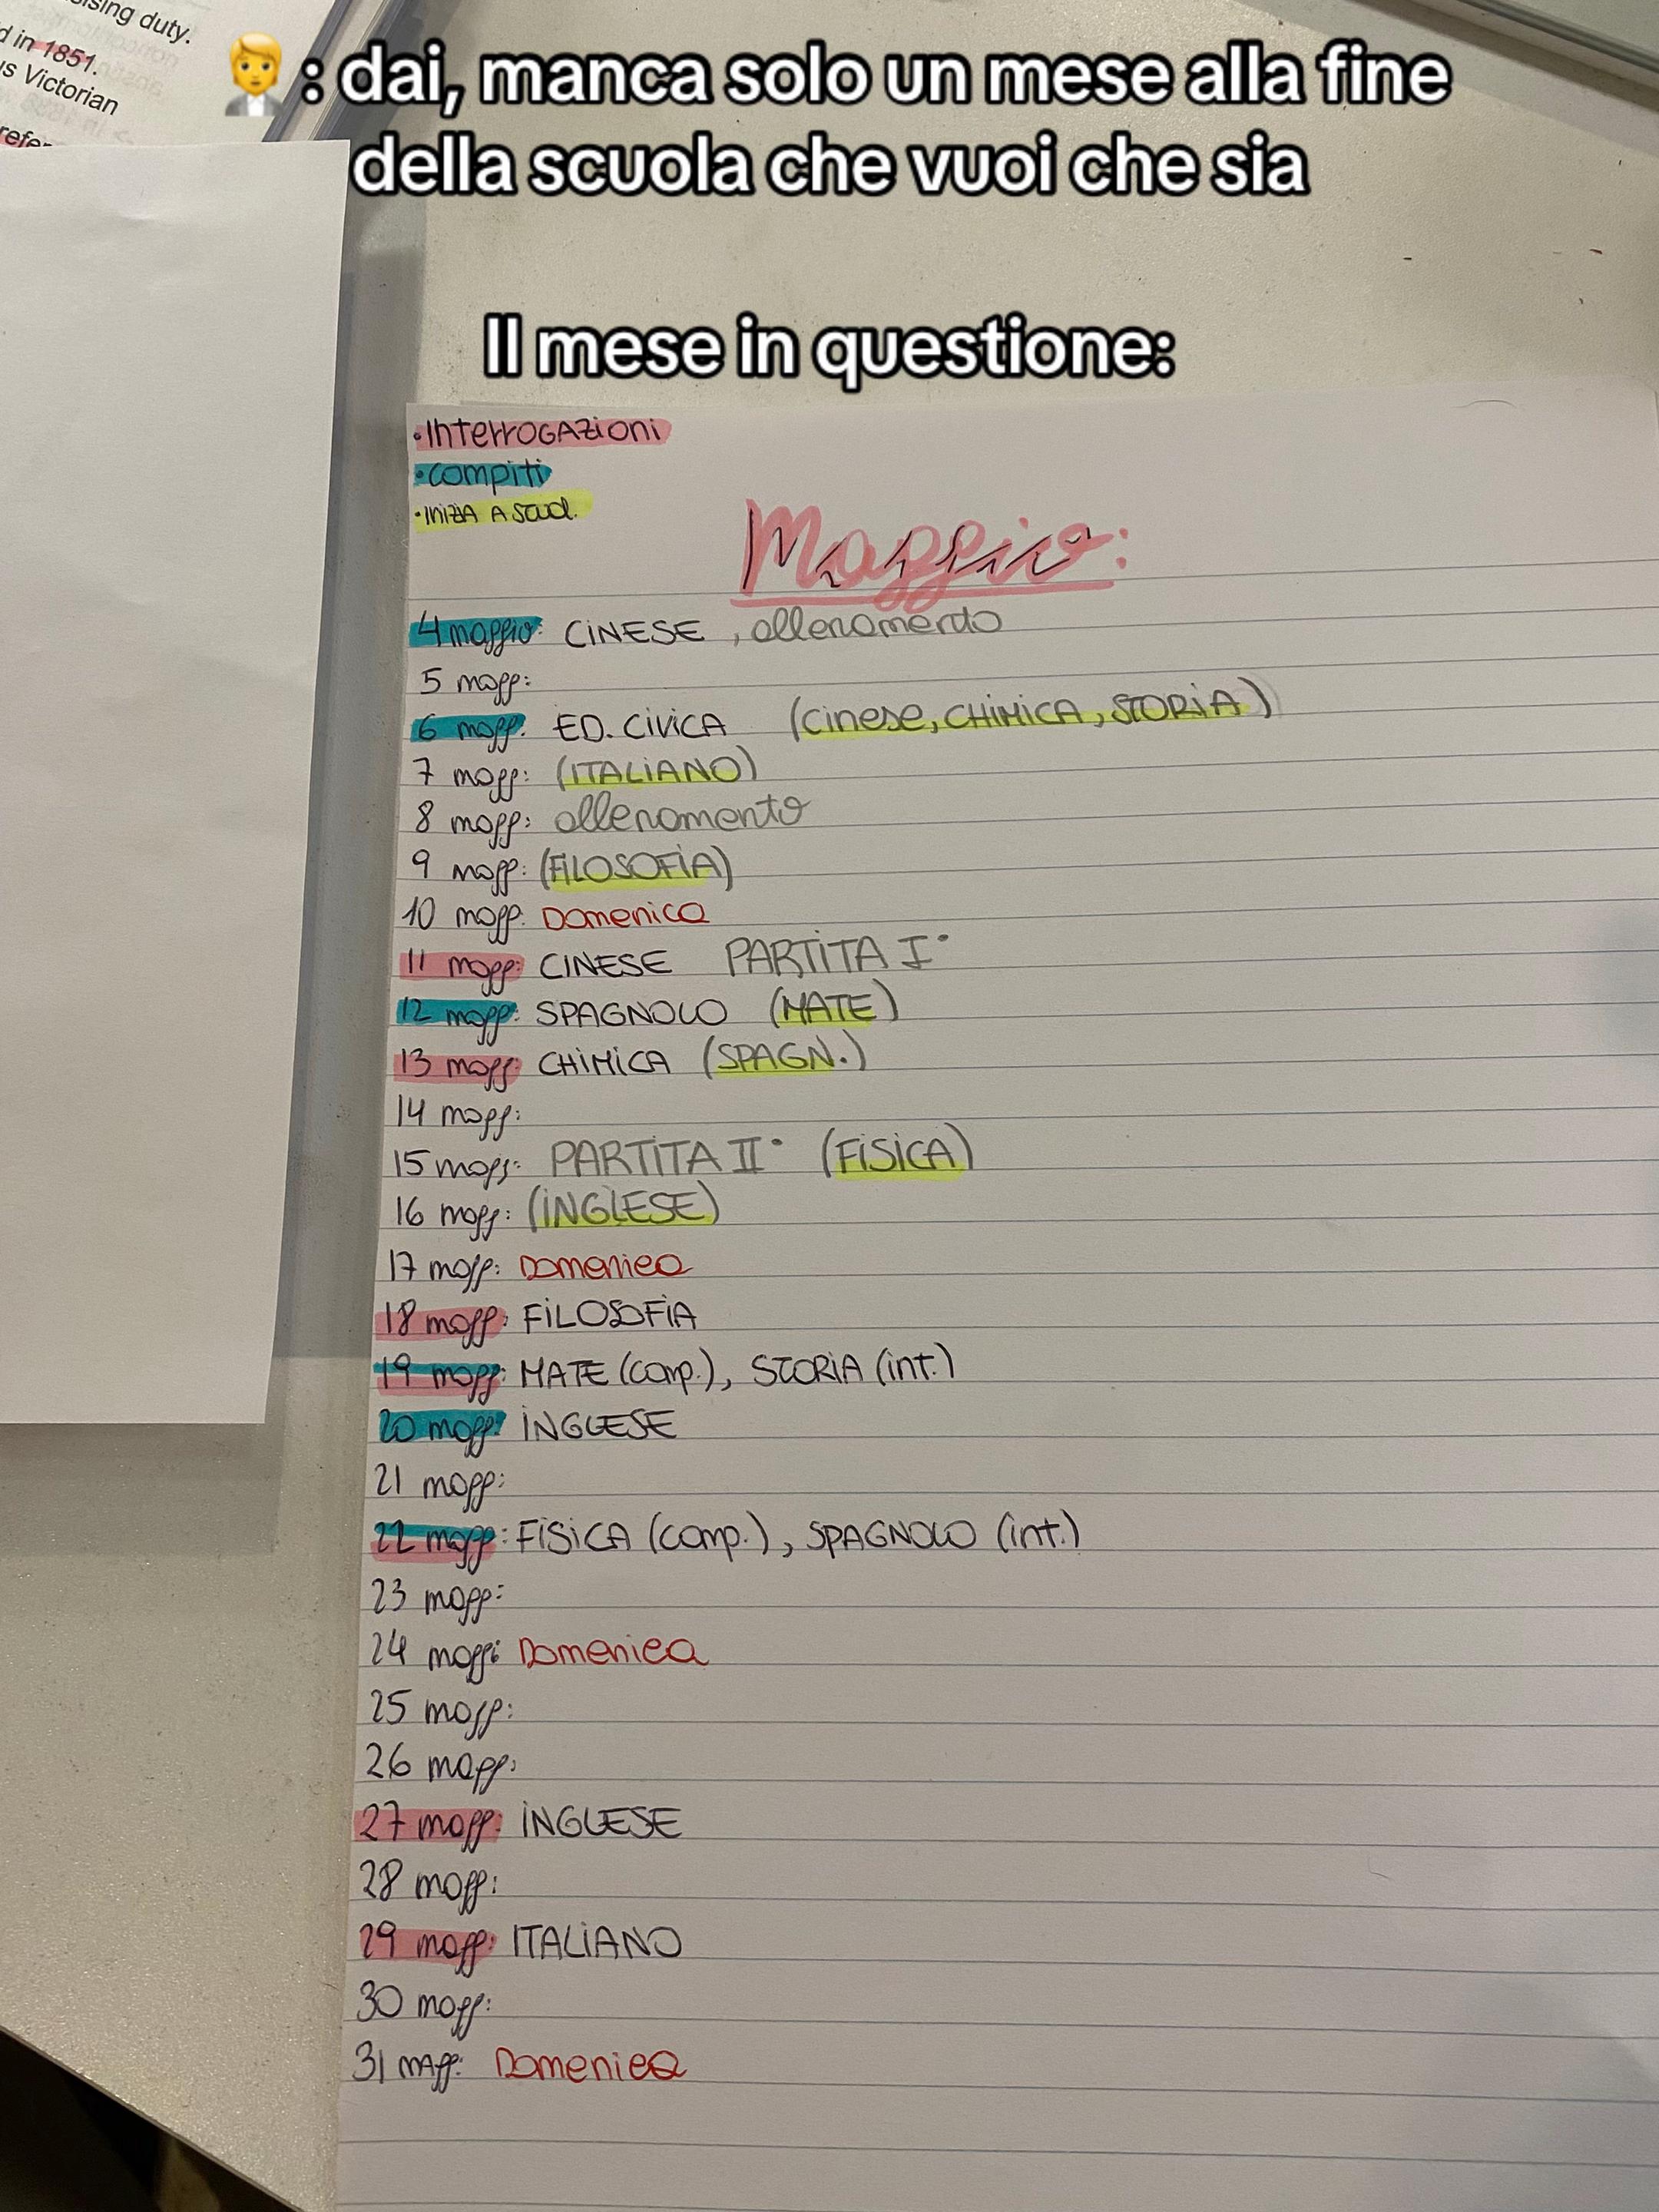 ising duty.
d in 1851.
us Victorian
refer
🤵: dai, manca solo un mese alla fine
della scuola che vuoi che sia
Il mese in questione:
• InterroGAZioni
• compiti
• inizia A scuol.
Maggio:
4 maggio: CINESE , allenamento
5 magg:
6 magg: ED. CIVICA (cinese, CHIMICA, STORIA)
7 magg: (ITALIANO)
8 magg: allenamento
9 magg: (FILOSOFIA)
10 magg: Domenica
11 magg: CINESE PARTITA I°
12 magg: SPAGNOLO (MATE)
13 magg: CHIMICA (SPAGN.)
14 magg:
15 magg: PARTITA II° (FISICA)
16 magg: (INGLESE)
17 magg: Domenica
18 magg: FILOSOFIA
19 magg: MATE (comp.), STORIA (int.)
20 magg: INGLESE
21 magg:
22 magg: FISICA (comp.), SPAGNOLO (int.)
23 magg:
24 magg: Domenica
25 magg:
26 magg:
27 magg: INGLESE
28 magg:
29 magg: ITALIANO
30 magg:
31 magg: Domenica